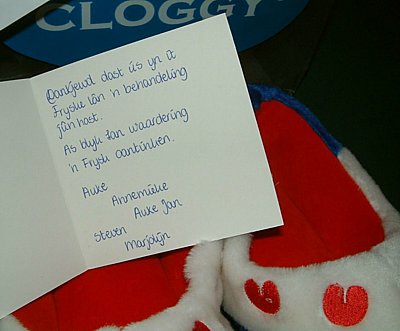 CLOGGY
Dankjewel dast ús yn it
Fryske lân 'n behandeling
jûn hast.
As blyk fan waardering
'n Frysk oantinken.
Auke
Annemieke
Auke Jan
Steven
Marjolijn